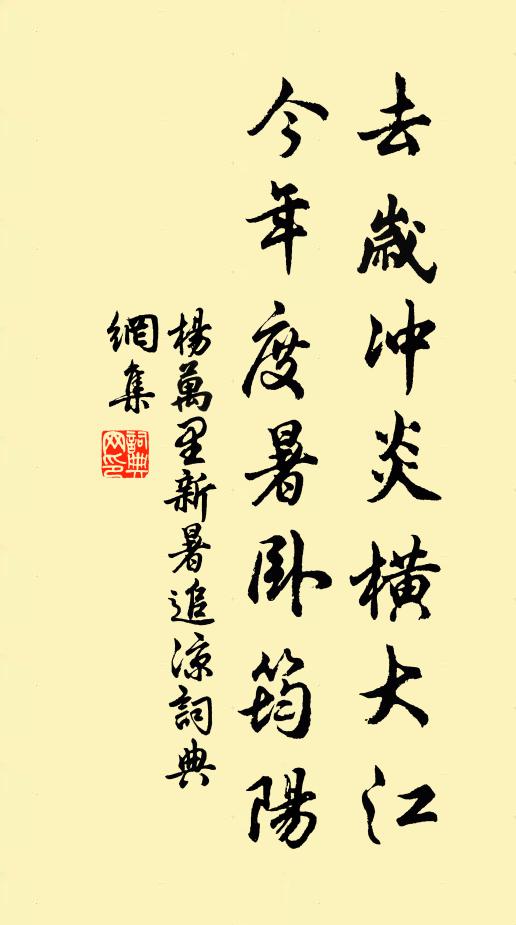 去歲冲炎橫大江
今年度暑臥筠陽
楊萬里新暑追涼詞典
網集
詞典網印